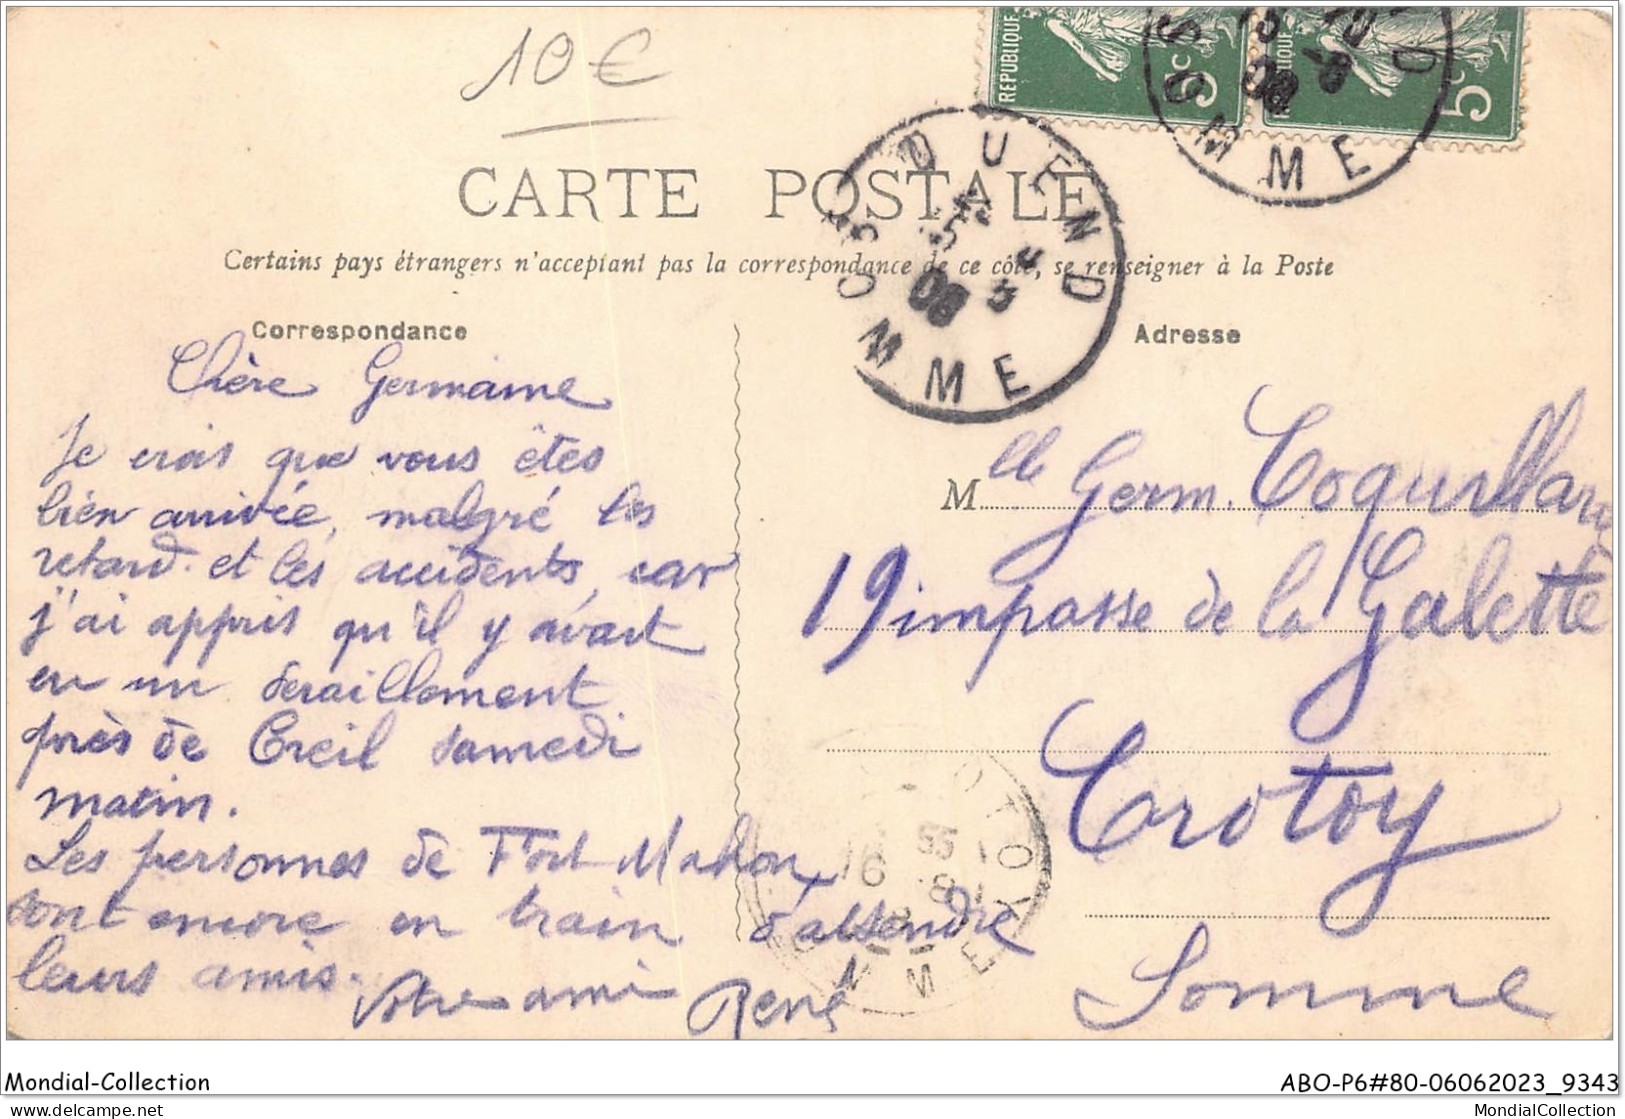 10€
REPUBLIQUE
5c
5c
SOMME
CARTE POSTALE
QUEND
SOMME
Certains pays étrangers n'acceptant pas la correspondance de ce côté, se renseigner à la Poste
Correspondance
Chère Germaine
Je crois que vous êtes
bien arrivée, malgré les
retard et les accidents, car
j'ai appris qu'il y avait
eu un deraillement
près de Creil samedi
matin.
Les personnes de Fort Mahon
sont encore en train d'attendre
leurs amis.
Votre ami René
Adresse
Mlle Germ. Coquillard
19 impasse de la Galette
Crotoy
Somme
Mondial-Collection
ABO-P6#80-06062023_9343
www.delcampe.net
MondialCollection